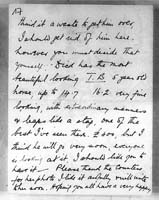 A
think it a waste to put him over,
I should get rid of him here.
however you must decide that
yourself. Dick has the most
beautiful looking T.B. 5 year old
horse, up to 14.7 16.2 very fine
looking, with extraordinary manners
& hops like a stag, one of the
best I've seen there £200, but I
think he will go very soon, everyone
is looking at it, I should like you to
have it - Please thank the
for her photo, I like it awfully & will write
this soon, Hoping you all have a very happy